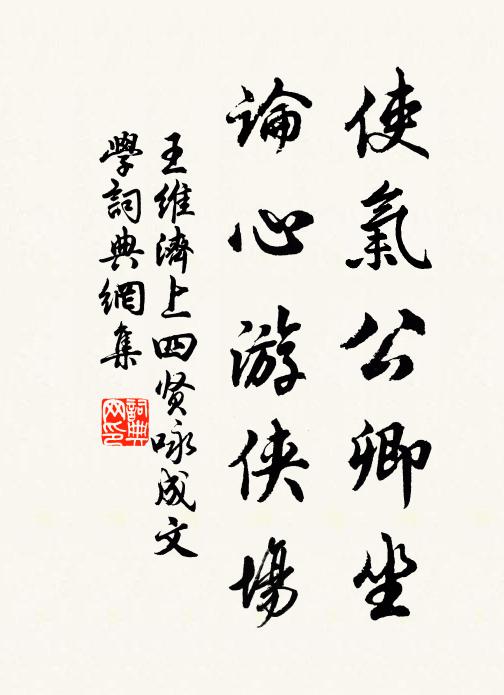 使氣公卿坐
論心游侠場
王维濟上四贤咏成文
學詞典網集
詞典网印